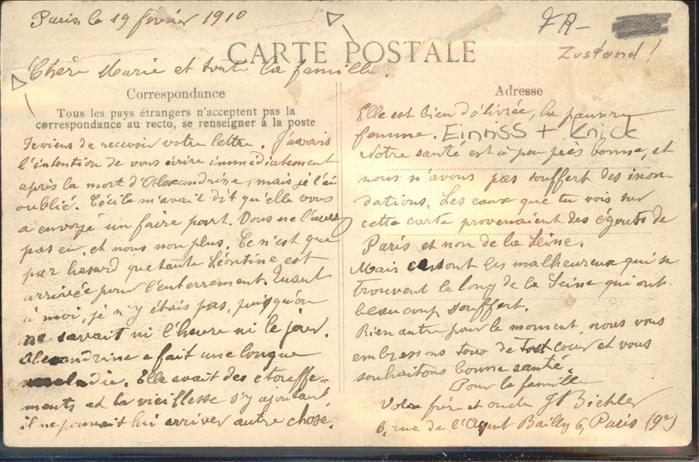 Paris le 19 février 1910
FR-
Zustand!
CARTE POSTALE
Chère Marie et toute la famille.
Correspondance
Tous les pays étrangers n'acceptent pas la
correspondance au recto, se renseigner à la poste
Je viens de recevoir votre lettre. J'avais
l'intention de vous écrire immédiatement
après la mort d'Alexandrine, mais je l'ai
oublié. Cécile m'avait dit qu'elle vous
a envoyé un faire part. Vous ne l'avez
pas eu, et nous non plus. Ce n'est que
par hasard que tante Léontine est
arrivée pour l'enterrement. Quant
à moi, je n'y étais pas, puisqu'on
ne savait ni l'heure ni le jour.
Alexandrine a fait une longue
maladie. Elle avait des étouffe-
ments et la vieillesse s'y ajoutant
il ne pouvait lui arriver autre chose.
Adresse
Elle est bien délivrée, la pauvre
femme.
EinriSS + Knick
Notre santé est à peu près bonne, et
nous n'avons pas souffert des inon-
dations. Les eaux que tu vois sur
cette carte provenaient des égouts de
Paris et non de la Seine.
Mais ce sont les malheureux qui se
trouvent le long de la Seine qui ont
beaucoup souffert.
Rien autre pour le moment, nous vous
embrassons tous de tout cœur et vous
souhaitons bonne santé.
Pour la famille
Votre frère et oncle Bichler
6, rue de l'Agent Bailly 6, Paris (9e)